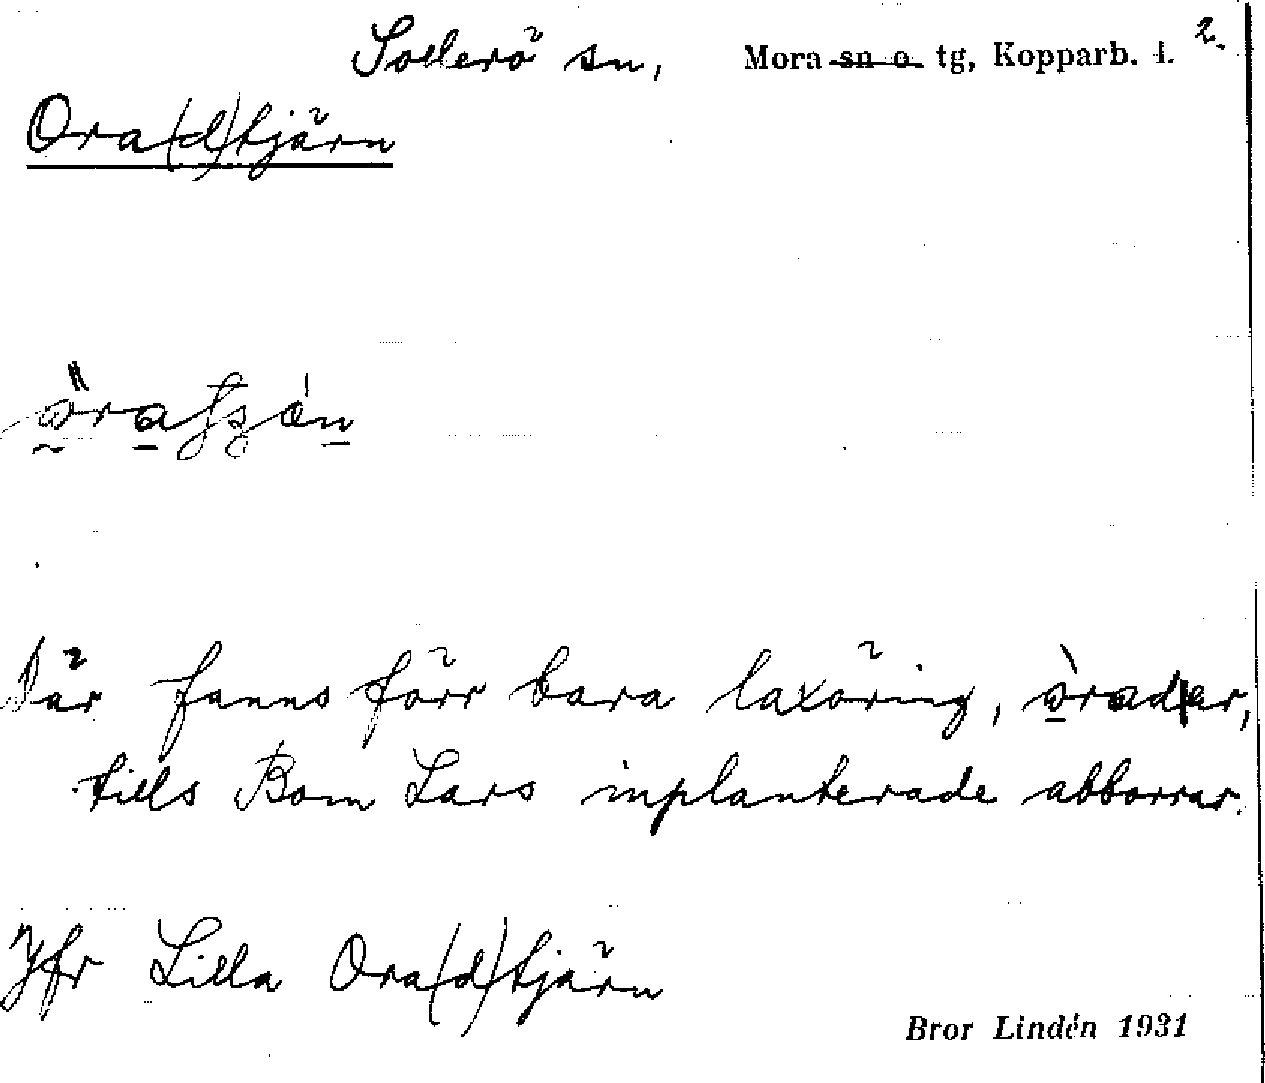 Sollerö sn, Mora sn o. tg, Kopparb. l. 2.
Ora(d)tjärn
Där fanns förr bara laxöring,
tills Bom Lars inplanterade abborrar.
Jfr Lilla Ora(d)tjärn
Bror Lindén 1931